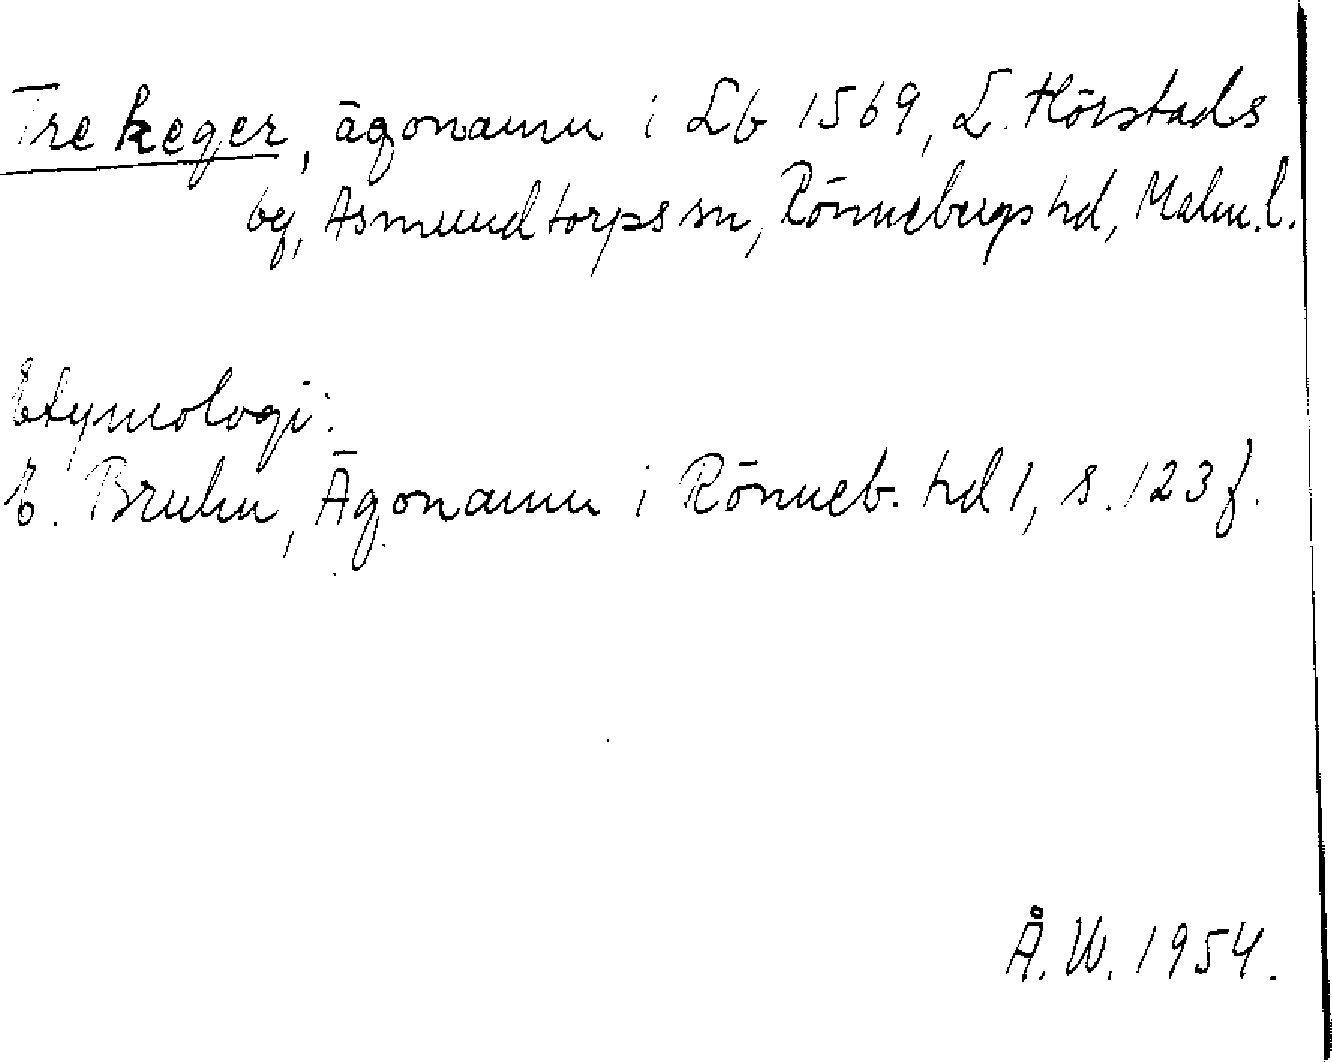 Tre keger, ägonamn i Lb 1569, L. Hörstads
by, Asmundtorps sn, Rönnebergs hd, Malm. l.
Etymologi:
E. Bruhn, Ägonamn i Rönneb. hd 1, s. 123 f.
Å. W. 1954.